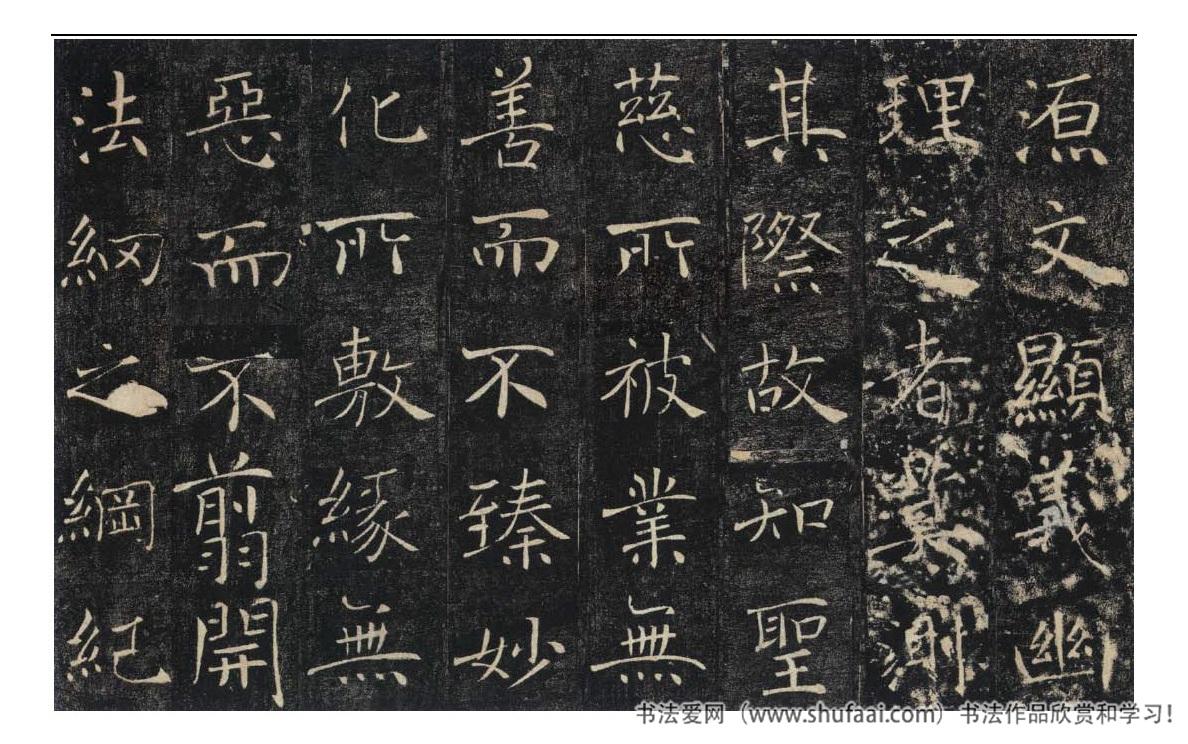 源文顯義幽
理之者莫測
其際故知聖
慈所被業無
善而不臻妙
化所敷緣無
惡而不翦開
法網之綱紀
书法爱网（www.shufaai.com）书法作品欣赏和学习！